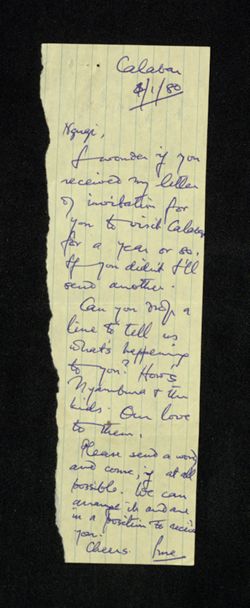 Calabar
8/1/80
Ngugi,
I wonder if you
received my letter
of invitation for
you to visit Calabar
for a year or so.
If you didn't I'll
send another.
Can you drop a
line to tell us
what's happening
to you? How's
Nyambura & the
kids. Our love
to them.
Please send a word
and come, if at all
possible. We can
arrange it and are
in a position to receive
you.
Cheers.